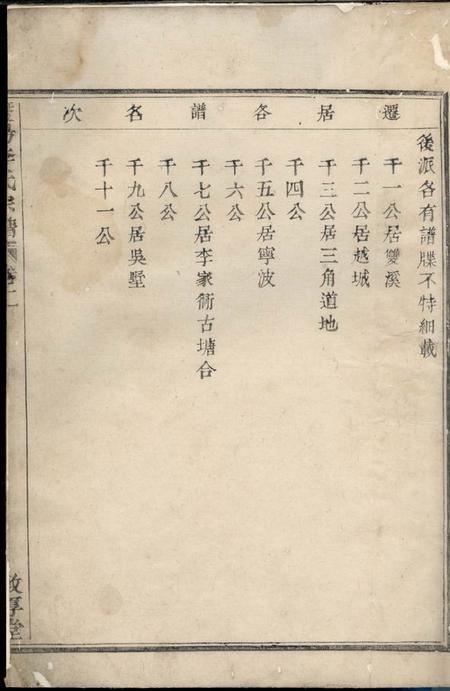 遷居各譜名次
後派各有譜牒不特細載
千一公居雙溪
千二公居越城
千三公居三角道地
千四公
千五公居寧波
千六公
千七公居李家衖古塘合
千八公
千九公居吳墅
千十一公
氏宗譜
卷之二
敦厚堂